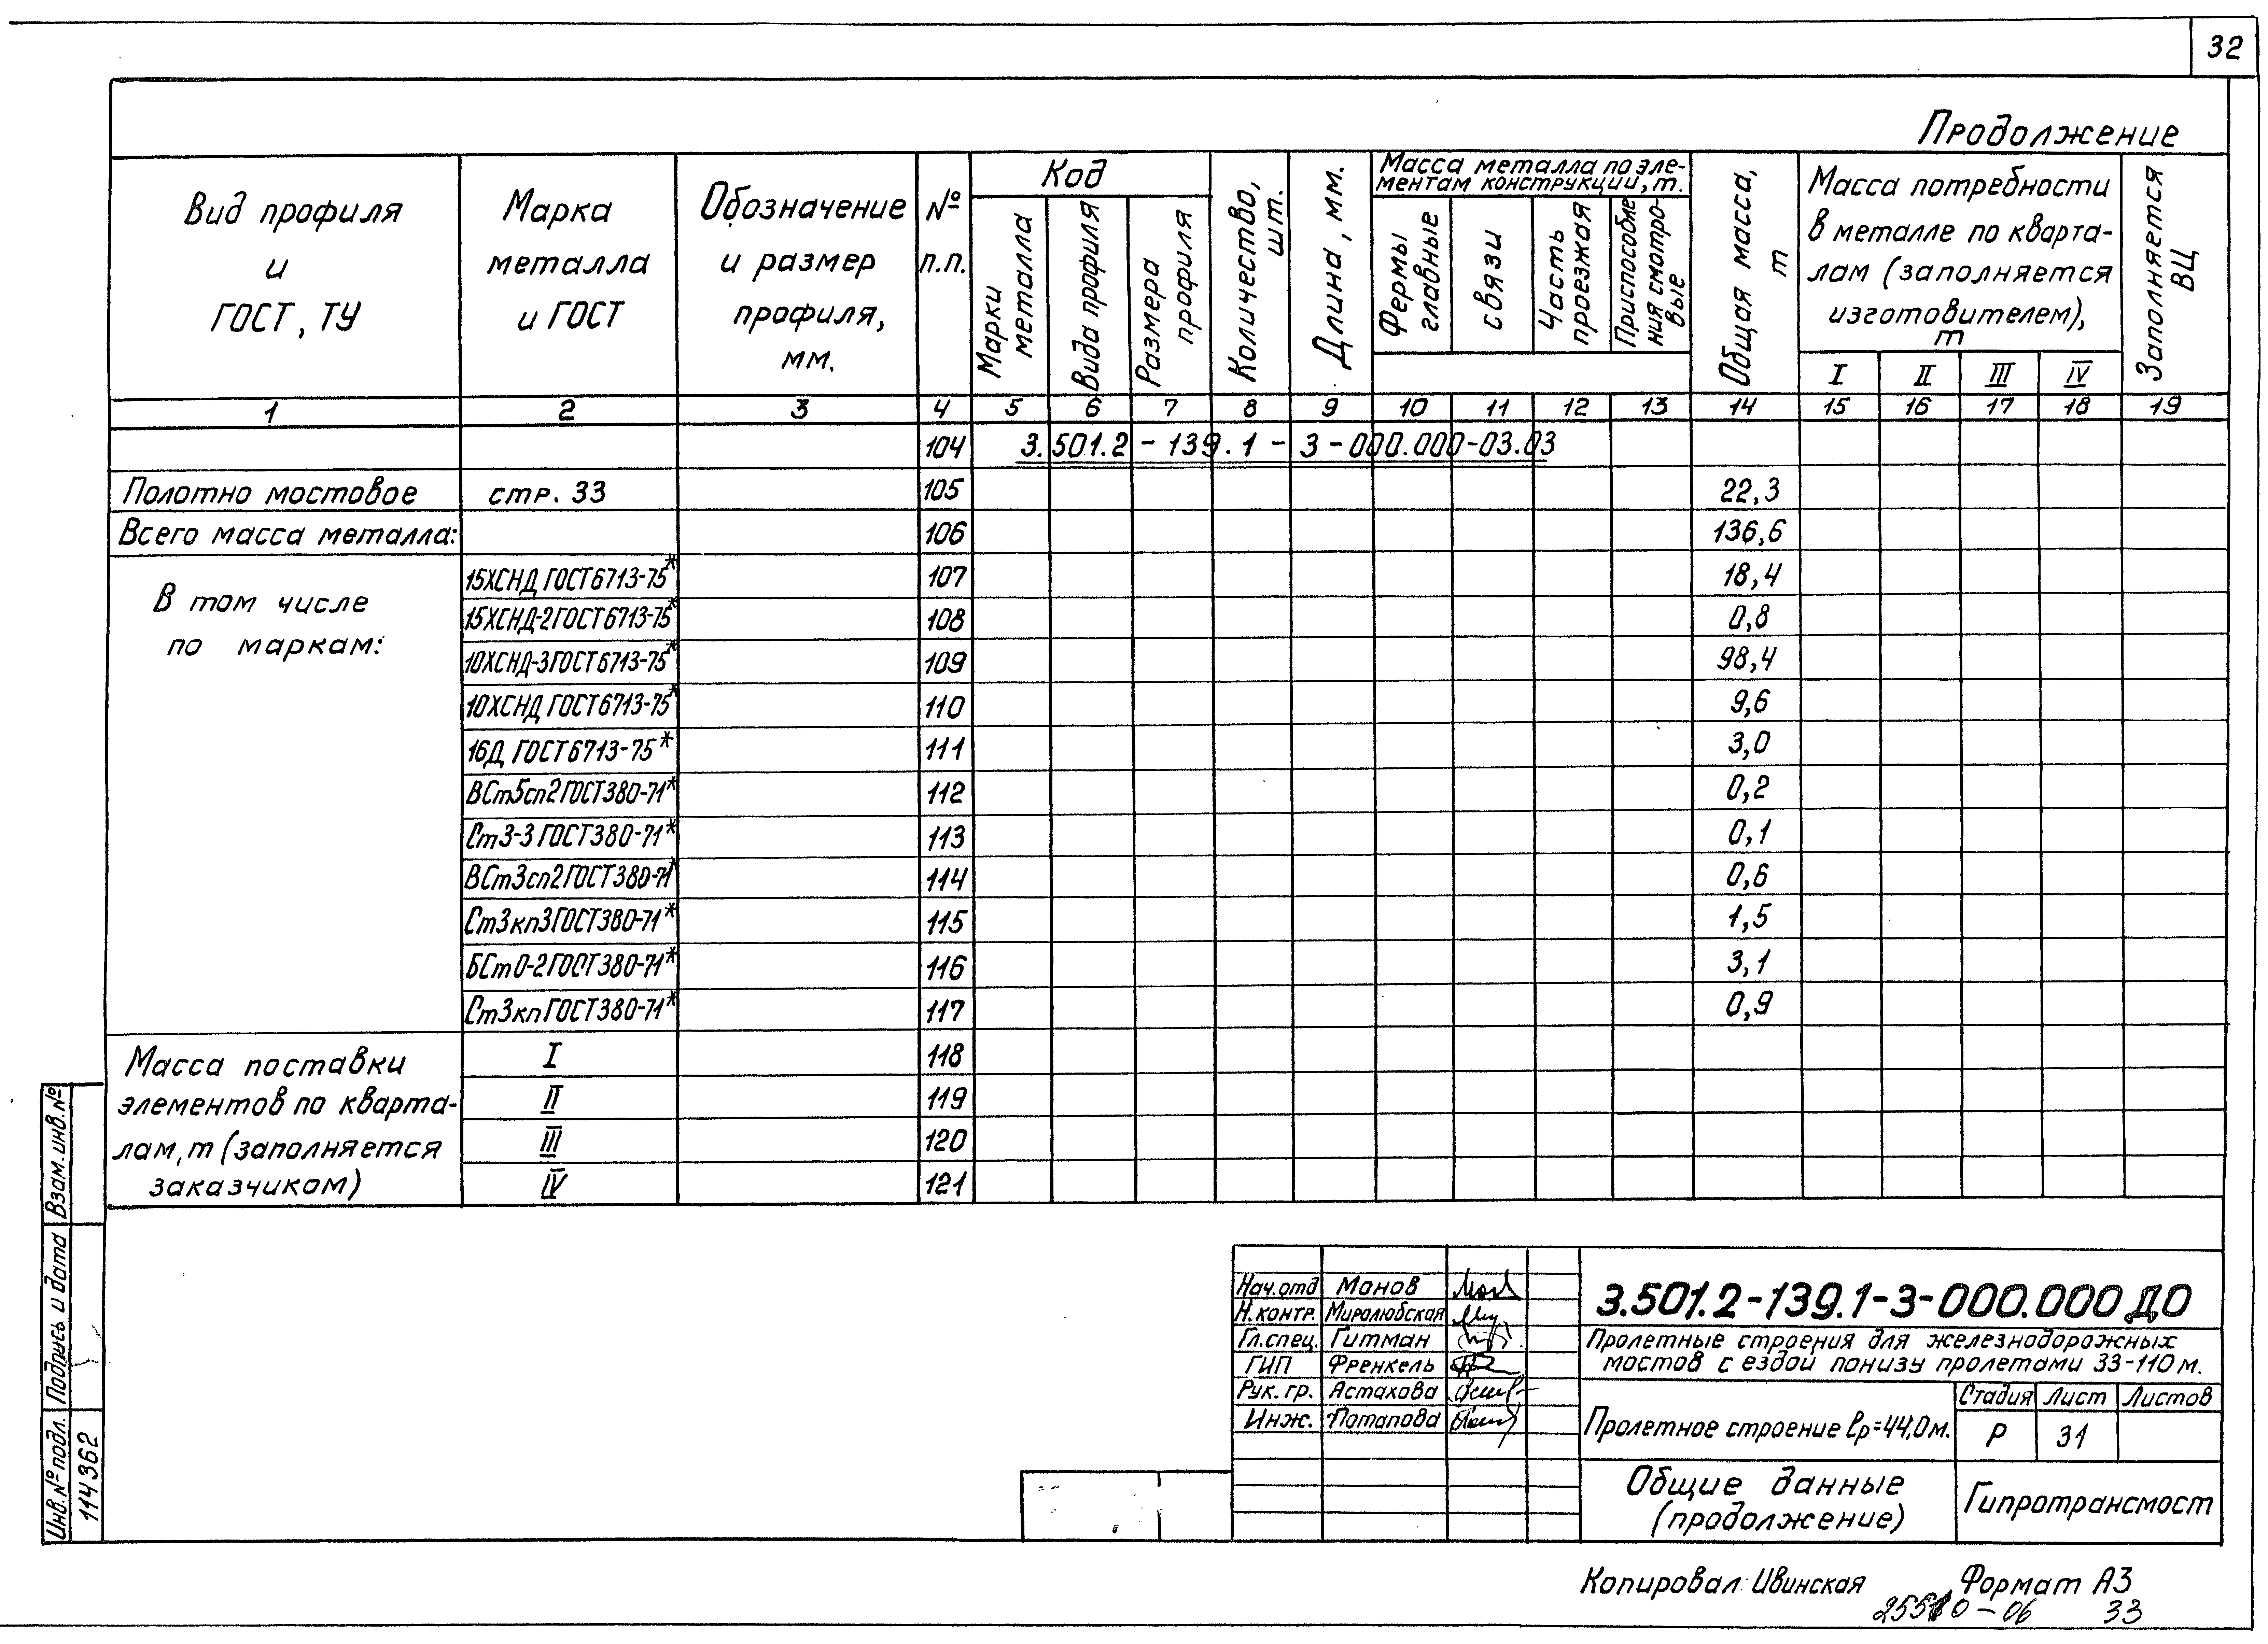 32
Продолжение
Вид профиля и ГОСТ, ТУ
Марка металла и ГОСТ
Обозначение и размер профиля, мм.
№ п.п.
Код
Марки металла
Вида профиля
Размера профиля
Количество, шт.
Длина, мм.
Масса металла по эле-
ментам конструкции, т.
Фермы главные
Связи
Часть проезжая
Приспособле-
ния смотро-
вые
Общая масса, т
Масса потребности
в металле по кварта-
лам (заполняется
изготовителем),
т
I II III IV
Заполняется ВЦ
1 2 3 4 5 6 7 8 9 10 11 12 13 14 15 16 17 18 19
104 3.501.2-139.1-3-000.000-03.03
Полотно мостовое стр. 33 105 22,3
Всего масса металла: 106 136,6
В том числе
по маркам:
15ХСНД ГОСТ 6713-75* 107 18,4
15ХСНД-2 ГОСТ 6713-75* 108 0,8
10ХСНД-3 ГОСТ 6713-75* 109 98,4
10ХСНД ГОСТ 6713-75* 110 9,6
16Д ГОСТ 6713-75* 111 3,0
ВСт5сп2 ГОСТ 380-71* 112 0,2
Ст3-3 ГОСТ 380-71* 113 0,1
ВСт3сп2 ГОСТ 380-71* 114 0,6
Ст3кп3 ГОСТ 380-71* 115 1,5
БСт0-2 ГОСТ 380-71* 116 3,1
Ст3кп ГОСТ 380-71* 117 0,9
Масса поставки
элементов по кварта-
лам, т (заполняется
заказчиком)
I 118
II 119
III 120
IV 121
Взам. инв. №
Подпись и дата
Инв. № подл.
114362
Нач. отд Монов
Н. контр. Миролюбская
Гл. спец. Гитман
ГИП Френкель
Рук. гр. Астахова
Инж. Потапова
3.501.2-139.1-3-000.000 ДО
Пролетные строения для железнодорожных
мостов с ездой понизу пролетами 33-110 м.
Пролетное строение lр=44,0 м.
Стадия Лист Листов
Р 31
Общие данные
(продолжение)
Гипротрансмост
Копировал: Ивинская Формат А3
33